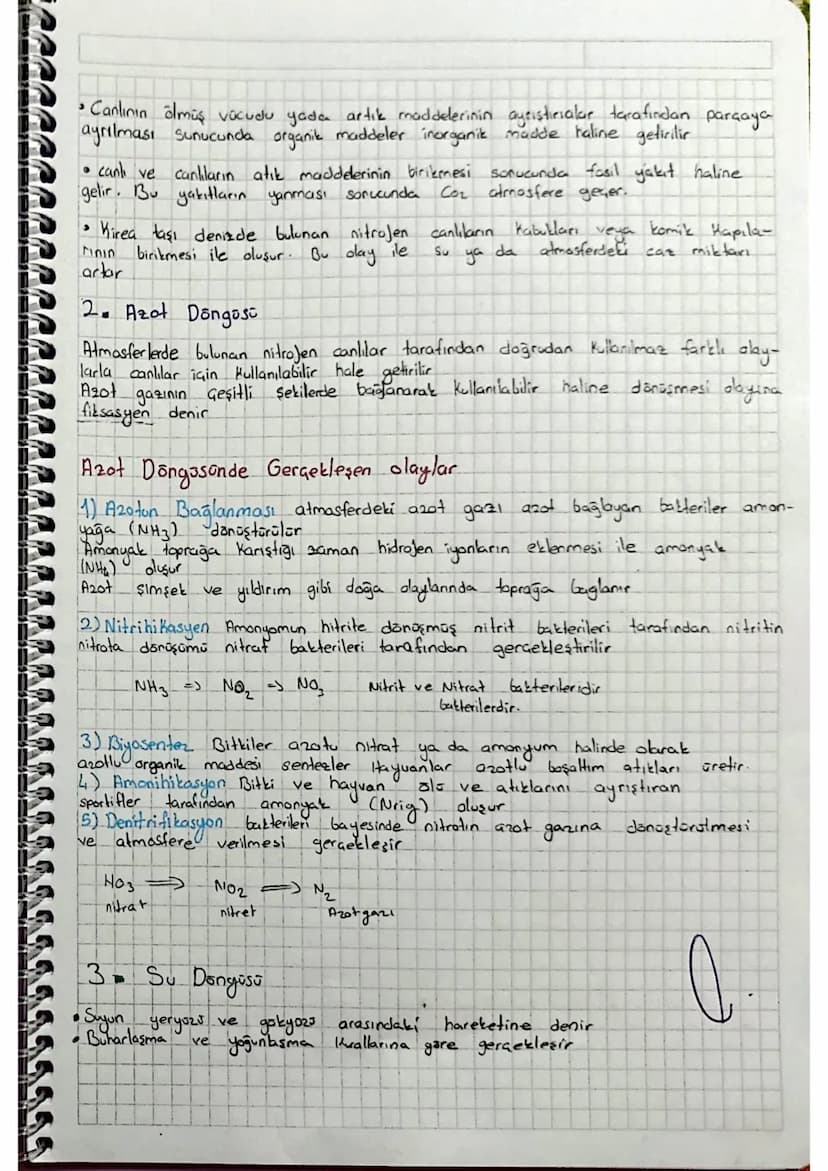 • Canlının ölmüş vücudu yada artık maddelerinin ayrıştırıcılar tarafından parçaya
ayrılması sunucunda organik maddeler inorganik madde haline getirilir
• canlı ve canlıların atık maddelerinin birikmesi sonucunda fosil yakıt haline
gelir. Bu yakıtların yanması sonucunda Co2 atmosfere geçer.
• Kireç taşı denizde bulunan nitrojen canlıların kabukları veya kemik
rının birikmesi ile oluşur. Bu olay ile su ya da atmosferdeki miktarı
artar
2. Azot Döngüsü
Atmosferlerde bulunan nitrojen canlılar tarafından doğrudan kullanılmaz farklı olay-
larla canlılar için kullanılabilir hale getirilir
Azot gazının çeşitli şekilerde bağlanarak kullanılabilir haline dönüşmesi olayına
fiksasyen denir
Azot Döngüsünde Gerçekleşen olaylar
1) Azotun Bağlanması atmasferdeki azot gazı azot bağlayan bakteriler amon-
yağa (NH3) dönüştürülür
Amonyak toprağa karıştığı zaman hidrojen iyonların eklenmesi ile amonyak
(NH4) oluşur
Azot şimşek ve yıldırım gibi doğa olaylarında toprağa bağlanır
2) Nitrihikasyen Amonyomun hitrite dönüşmüş nitrit bakterileri tarafından nitritin
nitrota dönüşümü nitrat bakterileri tarafından gercekleştirilir
NH3 => NO2 => NO3 Nitrit ve Nitrat bakterileridir
bakterilerdir.
3) Biyosentez Bitkiler azotu nitrat ya da amonyum halinde olarak
azollu organik maddesi sentezler Hayvanlar azotlu boşaltım atıkları üretir.
4) Amonihikasyon Bitki ve hayvan ölü ve atıklarını ayrıştıran
tarafından amonyak oluşur
5) Denitrifikasyon bakterileri bayesinde nitrotin azot gazına dönüştürülmesi
ve atmosfere verilmesi gerçekleşir
NO3 => NO2 => N2
nitrat nitret Azot gazı
3. Su Döngüsü
• Suyun yeryüzü ve gökyüzü arasındaki hareketine denir
• Buharlaşma ve yoğunlaşma kurallarına göre gerçekleşir